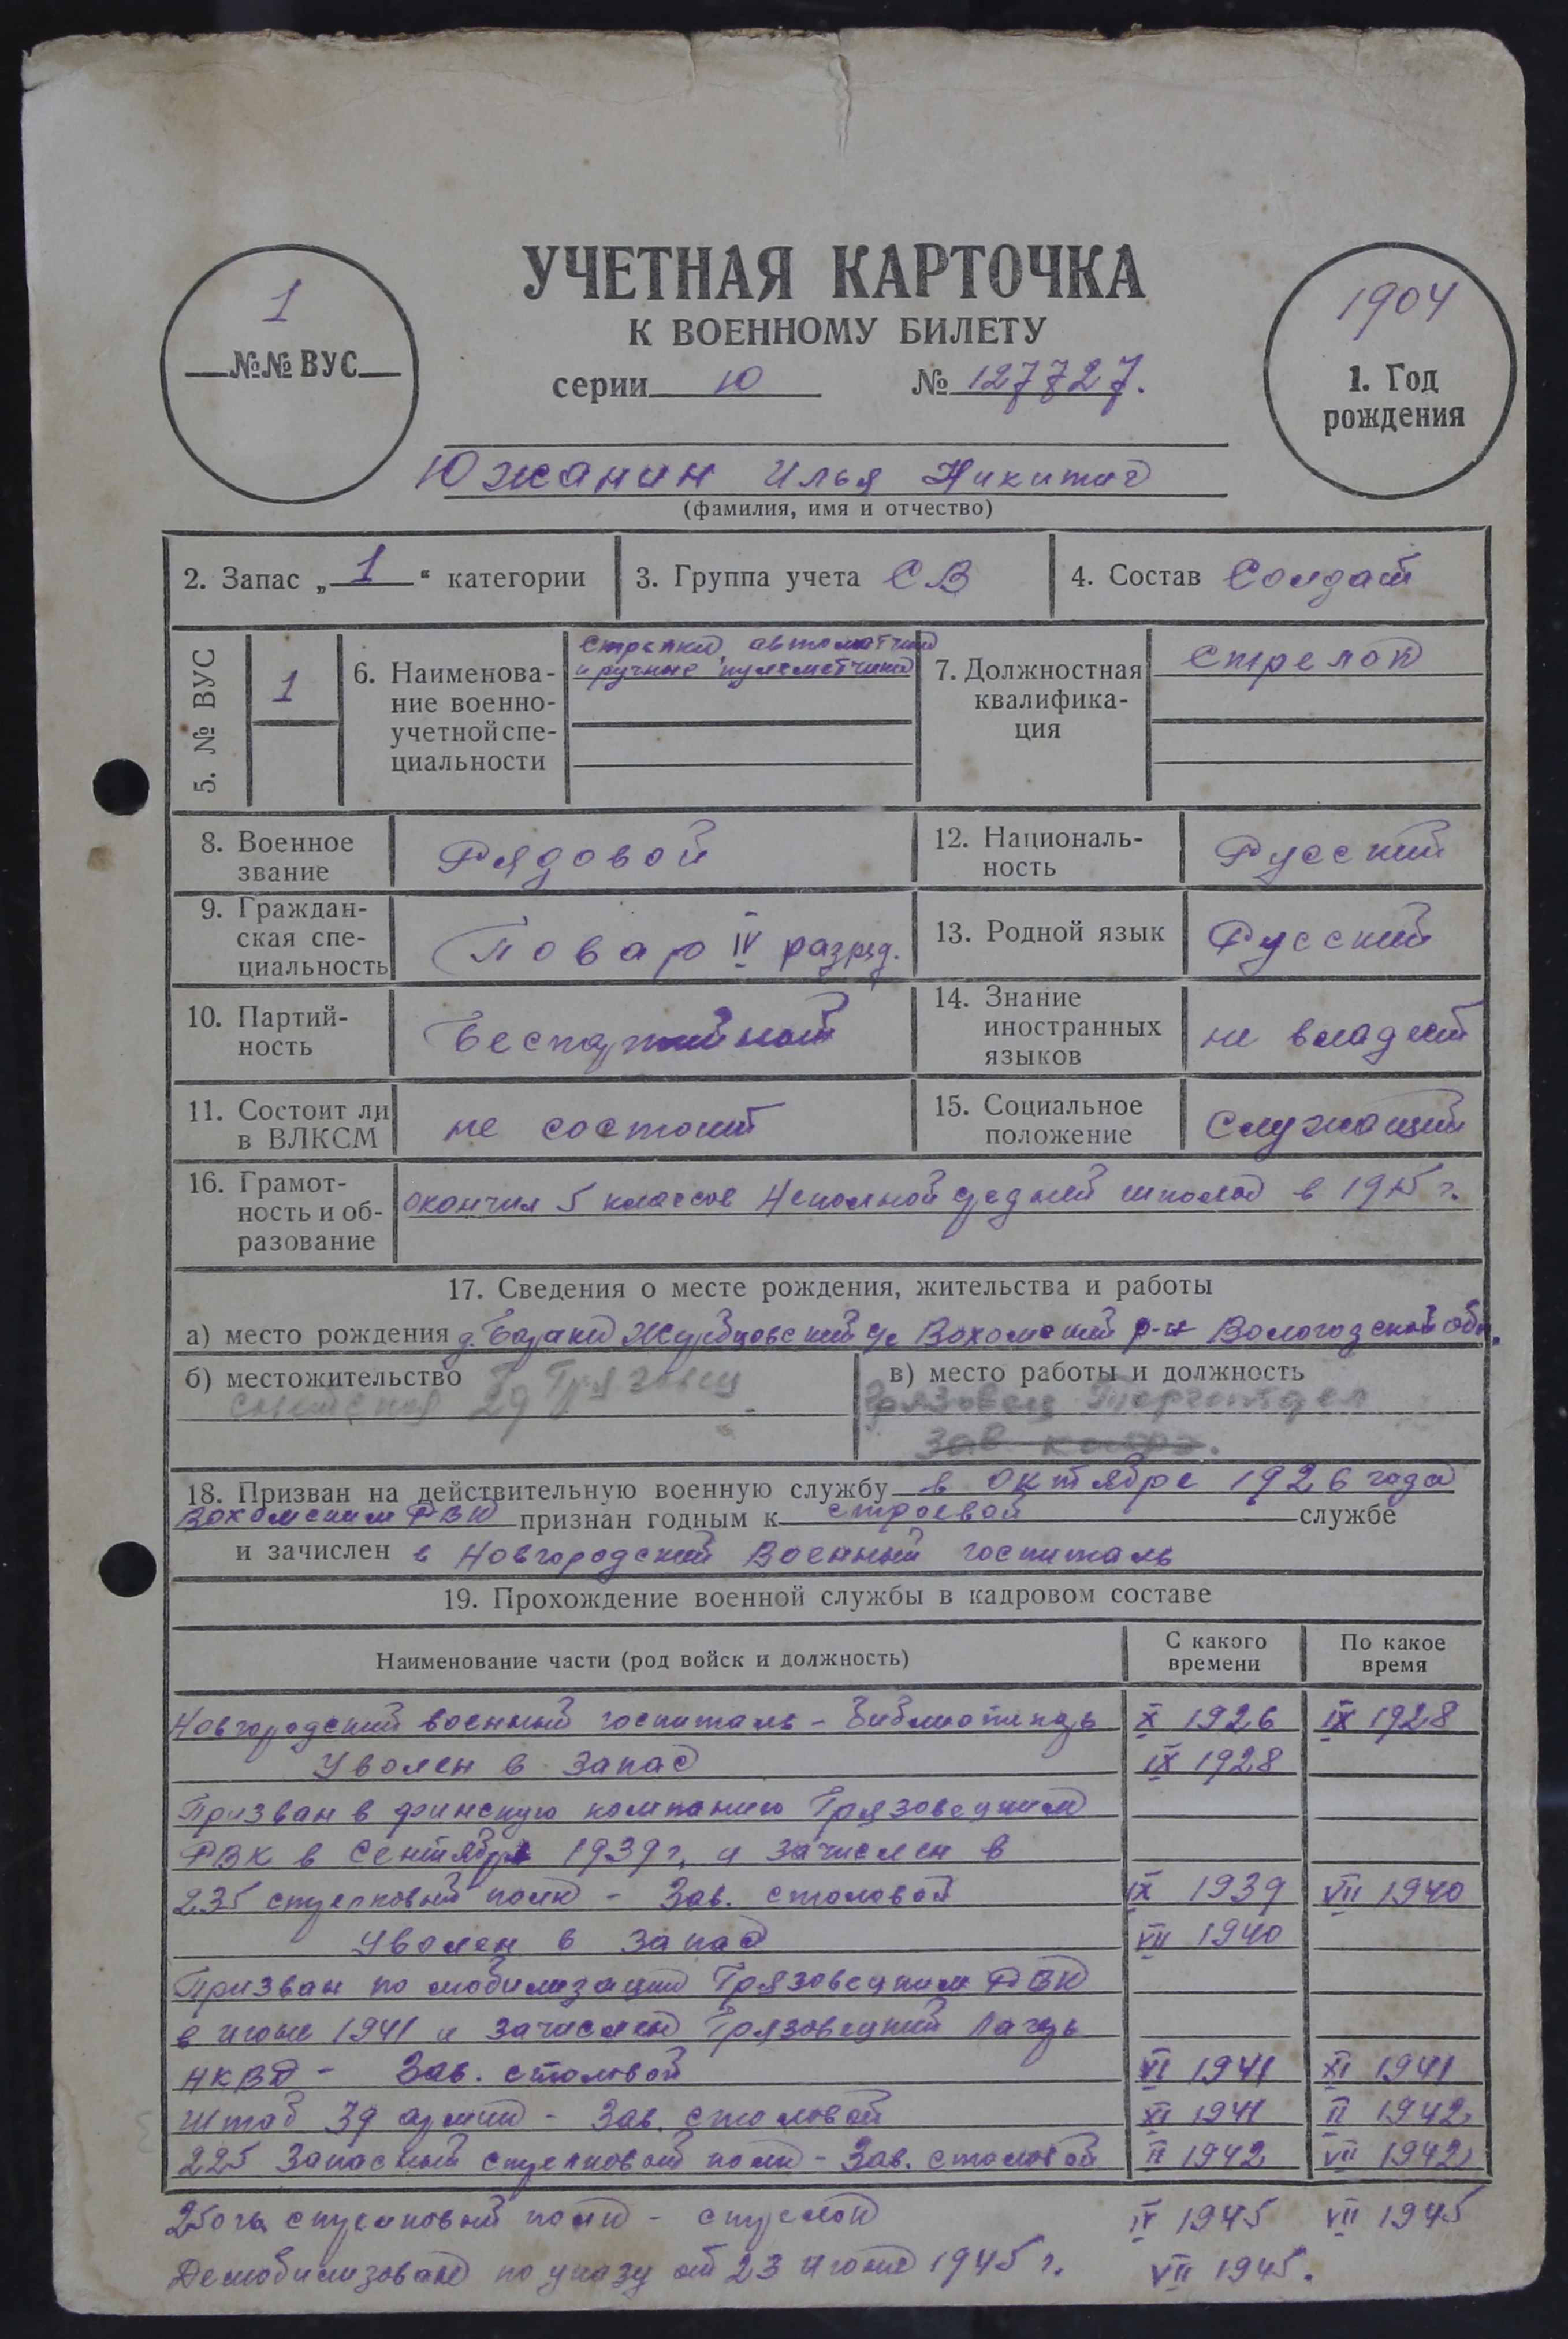 УЧЕТНАЯ КАРТОЧКА
К ВОЕННОМУ БИЛЕТУ
серии Ю № 127727.
1
№№ ВУС
1904
1. Год
рождения
Южанин Илья Никитич
(фамилия, имя и отчество)
2. Запас „ 1 “ категории
3. Группа учета СВ
4. Состав Солдат
5. № ВУС
1
6. Наименова-
ние военно-
учетной спе-
циальности
стрелки, автоматчики
и ручные пулеметчики
7. Должностная
квалифика-
ция
Стрелок
8. Военное
звание
Рядовой
12. Националь-
ность
Русский
9. Граждан-
ская спе-
циальность
Повар IV разряд.
13. Родной язык
Русский
10. Партий-
ность
Беспартийный
14. Знание
иностранных
языков
не владеет
11. Состоит ли
в ВЛКСМ
не состоит
15. Социальное
положение
Служащий
16. Грамот-
ность и об-
разование
окончил 5 классов Неполной средней школы в 1915 г.
17. Сведения о месте рождения, жительства и работы
а) место рождения д. Вохомский р-н Вологодской обл.
б) местожительство
Грязовец
Советская
в) место работы и должность
Грязовец Торготдел
Зав
18. Призван на действительную военную службу в октябре 1926 года
Вохомским РВК признан годным к строевой службе
и зачислен в Новгородский Военный госпиталь
19. Прохождение военной службы в кадровом составе
Наименование части (род войск и должность)
С какого
времени
По какое
время
Новгородский военный госпиталь – библиотекарь X 1926 IX 1928
Уволен в запас IX 1928
Призван в финскую компанию Грязовецким
РВК в Сентябре 1939 г. и зачислен в
235 стрелковый полк – Зав. столовой IX 1939 VII 1940
Уволен в запас VII 1940
Призван по мобилизации Грязовецким РВК
в июне 1941 и зачислен Грязовецкий Лагерь
НКВД – Зав. столовой VI 1941 XI 1941
Штаб 39 армии – Зав. столовой XI 1941 II 1942
225 Запасный стрелковый полк – Зав. столовой II 1942 VII 1942
250 гв. стрелковый полк – стрелок IV 1945 VII 1945
Демобилизован по указу от 23 июня 1945 г. VII 1945.